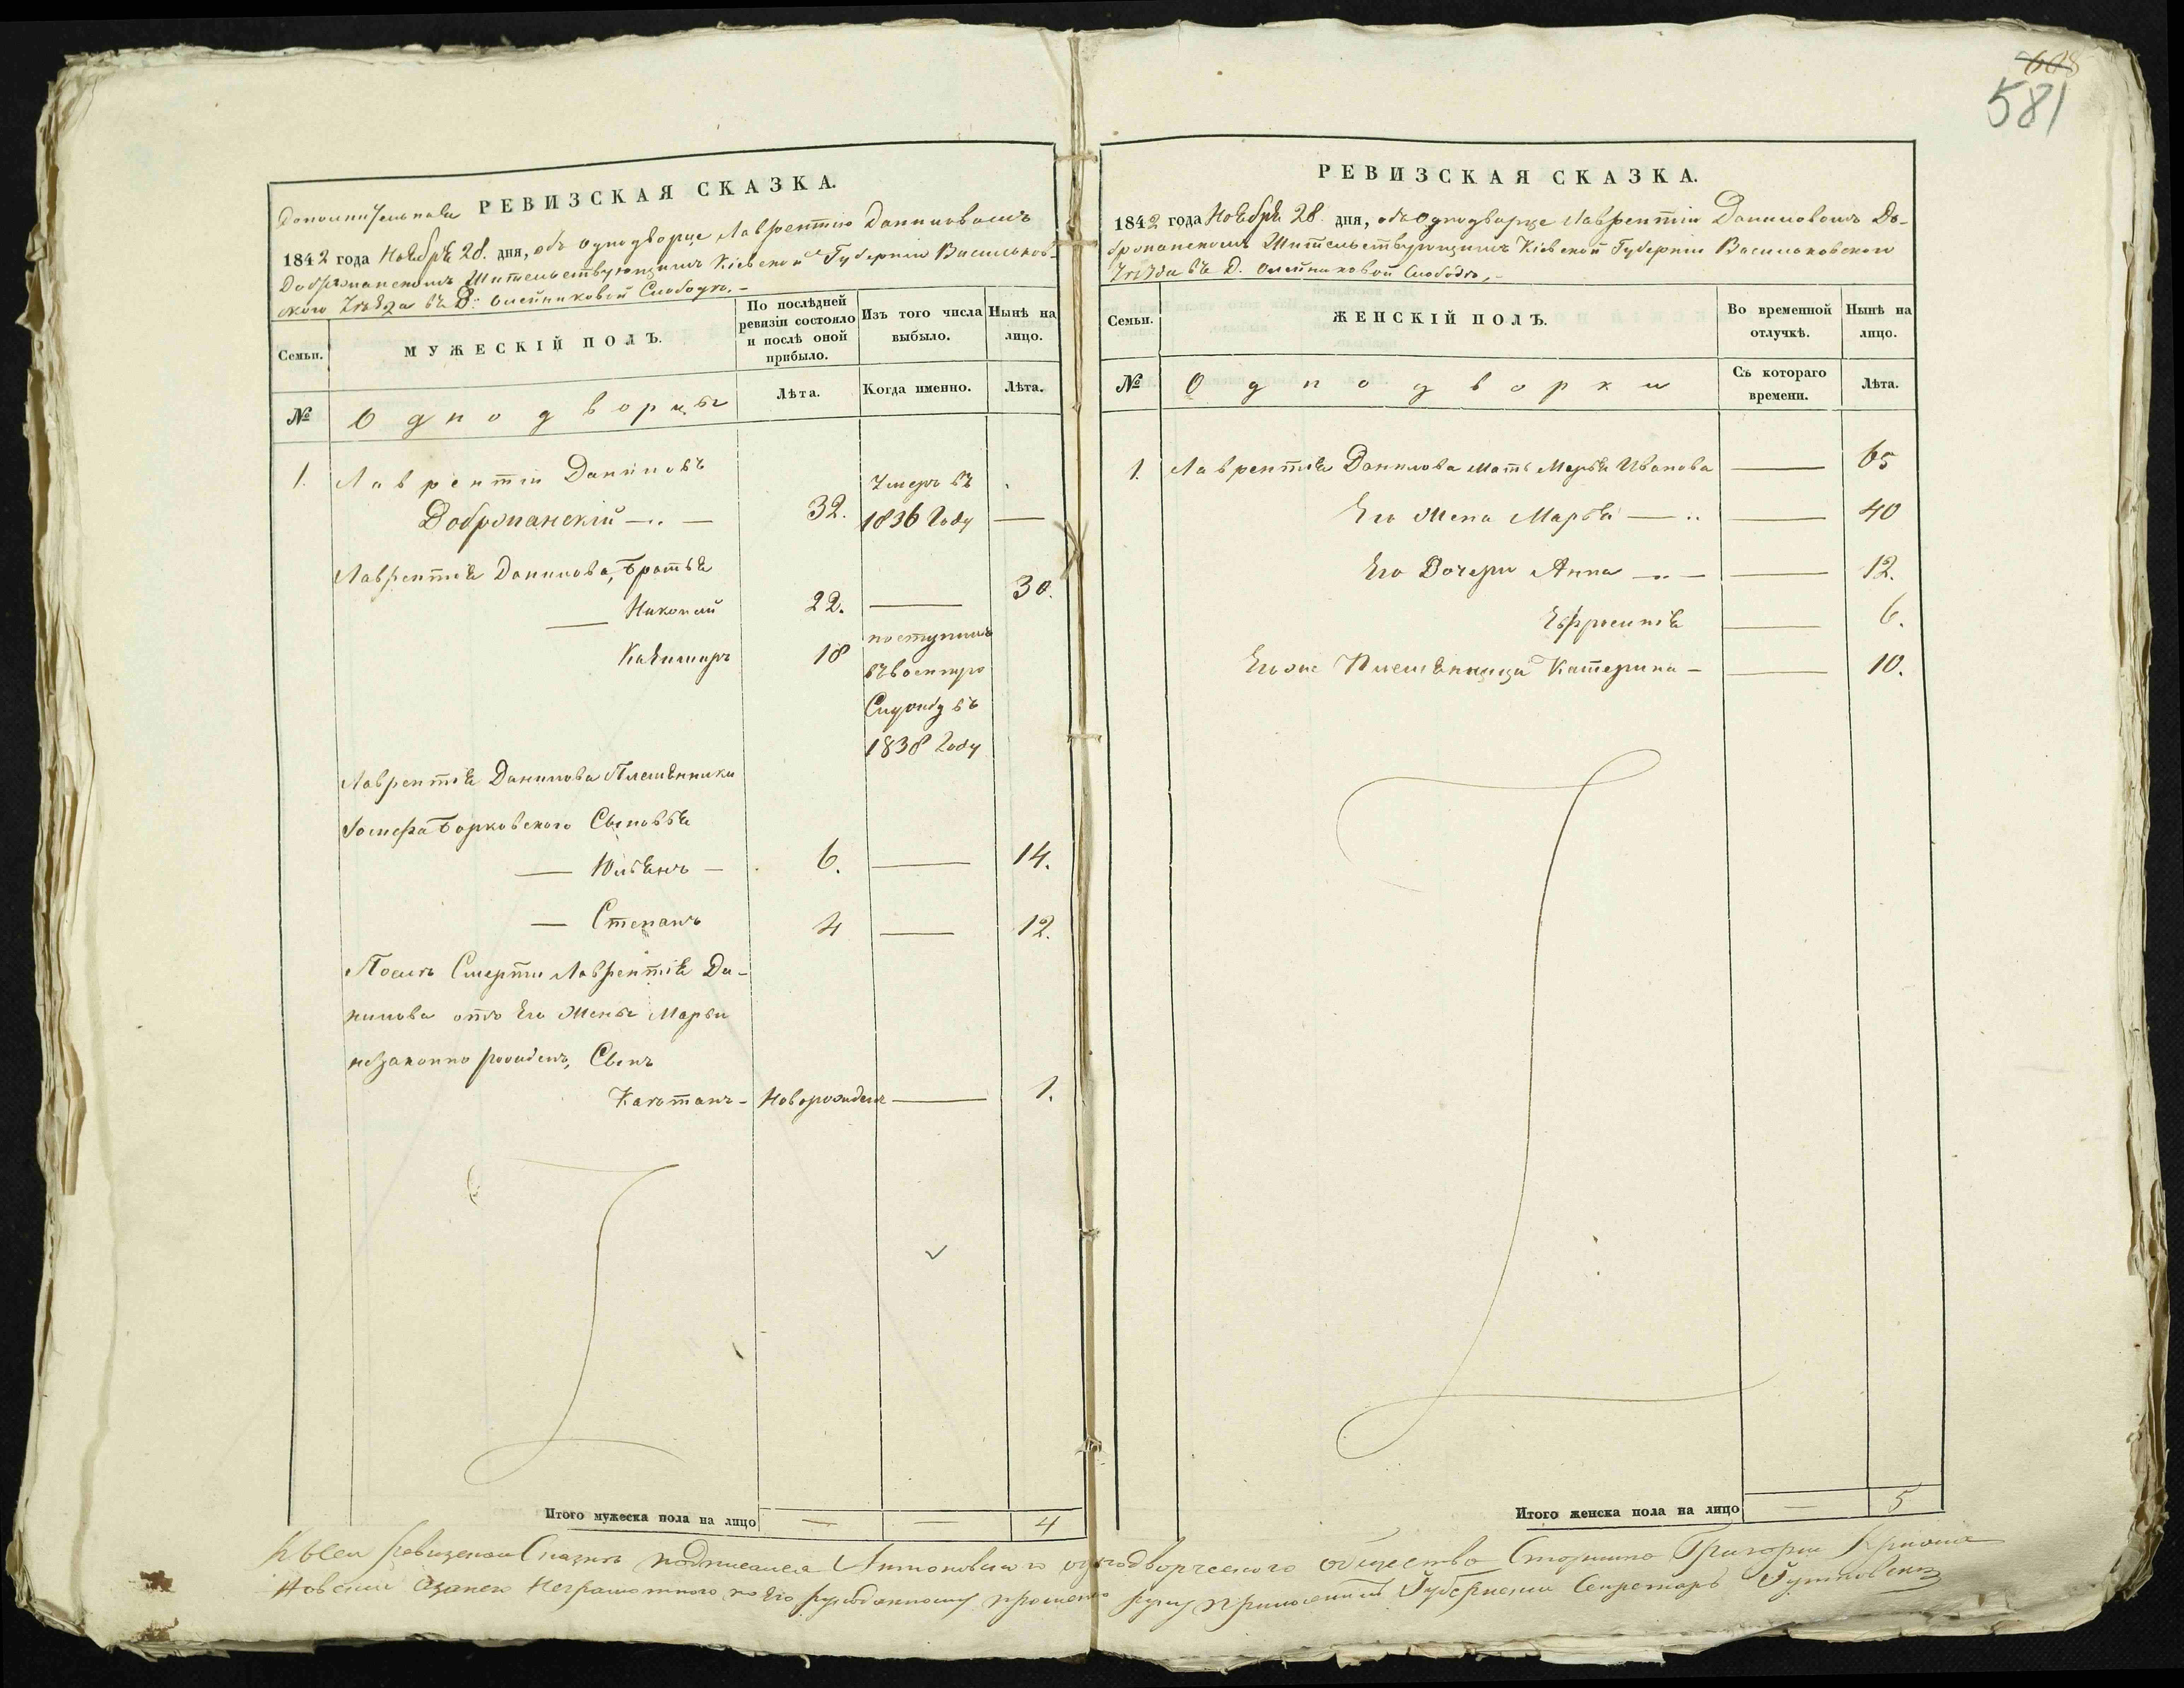 608
581
Дополнительная РЕВИЗСКАЯ СКАЗКА.
1842 года Ноября 28. дня, объ Однодворце Лаврентію Даниловомъ
Добропанскомъ Жительствующимъ Кіевской Губерніи Васильков-
ского Уезда въ Д. Олейниковой Слободѣ. -
Семьи.
МУЖЕСКІЙ ПОЛЪ.
По послѣдней ревизіи состояло и послѣ оной прибыло.
Изъ того числа выбыло.
Нынѣ на лицо.
№
Однодворцы
Лѣта.
Когда именно.
Лѣта.
1. Лаврентій Даниловъ
Добропанскій — 32. Умеръ въ 1836 Году —
Лаврентія Данилова, Братья
Николай 22. — 30.
Казимиръ 18 поступилъ
въ военную
Службу въ
1838 Году
Лаврентія Данилова Племянники
Іосифа Борковского Сыновья
— Юльянъ — 6. — 14.
— Степанъ 4 — 12.
Послѣ Смерти Лаврентія Да-
нилова отъ Его Жены Марьи
незаконно рожденъ, Сынъ
Каетанъ - Новорожденъ — 1.
Итого мужеска пола на лицо — — 4
РЕВИЗСКАЯ СКАЗКА.
1842 года Ноября 28. дня, объ Однодворце Лаврентіи Даниловомъ До-
бропанскомъ Жительствующимъ Кіевской Губерніи Васильковского
Уезда въ Д. Олейниковой Слободѣ, -
Семьи.
ЖЕНСКІЙ ПОЛЪ.
Во временной отлучкѣ.
Нынѣ на лицо.
№
Однодворки
Съ котораго времени.
Лѣта.
1. Лаврентія Данилова Мать Марья Иванова — 65
Его Жена Марья — — 40
Его Дочери Анна — — 12.
Ефросинія — 6.
Его же Племянница Катерина - — 10.
Итого женска пола на лицо — 5
Къ сей ревизской Сказкѣ подписался Антоновского однодворческого общества Старшина Григорій
а занего Неграмотного по Его рукоданному прошенію руку приложилъ Губернскій Секретарь